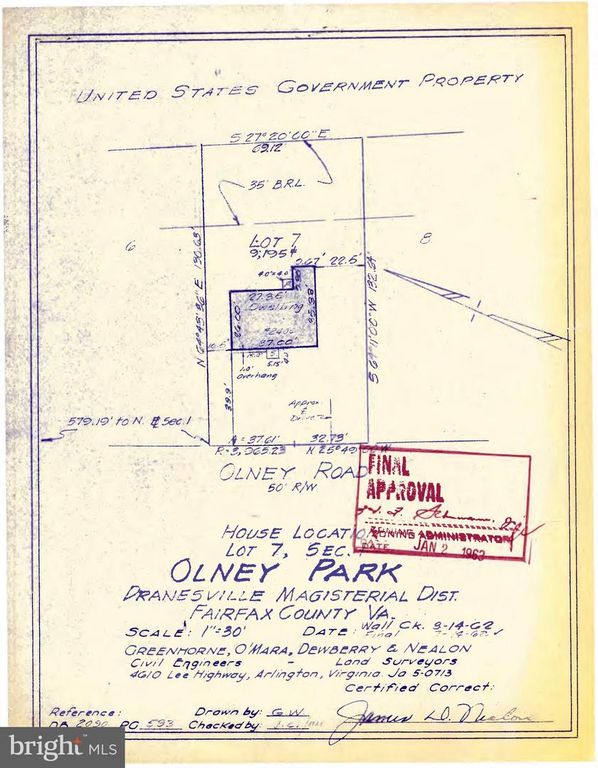 UNITED STATES GOVERNMENT PROPERTY
S 27° 20' 00" E
69.12'
35' B.R.L.
6
LOT 7
8
9,195
9.67' 22.5'
4.0'x4.0'
27.35'
Dwelling
26.00'
37.00'
5.15
1.0'
Overhang
39.9'
Approx
S 69° 11' 00" W 132.64'
579.19' to N. Sec. 1
A = 37.61' 32.73'
R = 3,065.23 N 25° 49'
OLNEY ROAD
50' R/W
FINAL
APPROVAL
ZONING ADMINISTRATOR
DATE JAN 2 1963
HOUSE LOCATION
LOT 7, SEC. 1
OLNEY PARK
DRANESVILLE MAGISTERIAL DIST.
FAIRFAX COUNTY VA.
SCALE: 1"=30' DATE: Wall Ck. 8-14-62
Final
GREENHORNE, O'MARA, DEWBERRY & NEALON
Civil Engineers - Land Surveyors
4610 Lee Highway, Arlington, Virginia Ja 5-0713
Certified Correct:
Reference: Drawn by: G.W.
DB 2090 PG 593 Checked by:
James D. Nealon
bright MLS